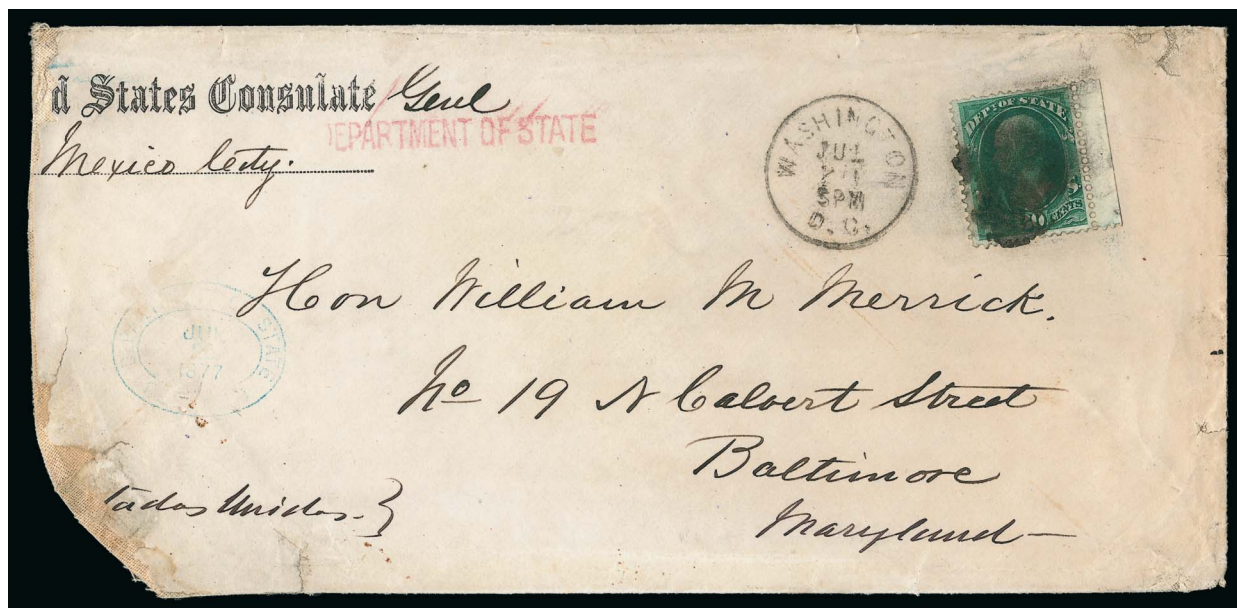 d States Consulate Genl
Mexico City.
DEPARTMENT OF STATE
WASHINGTON
JUL
5PM
D.C.
DEPT. OF STATE
CENTS
Hon William M Merrick.
STATE
1877
No 19 N Calvert Street
Baltimore
Maryland
tados Unidos.